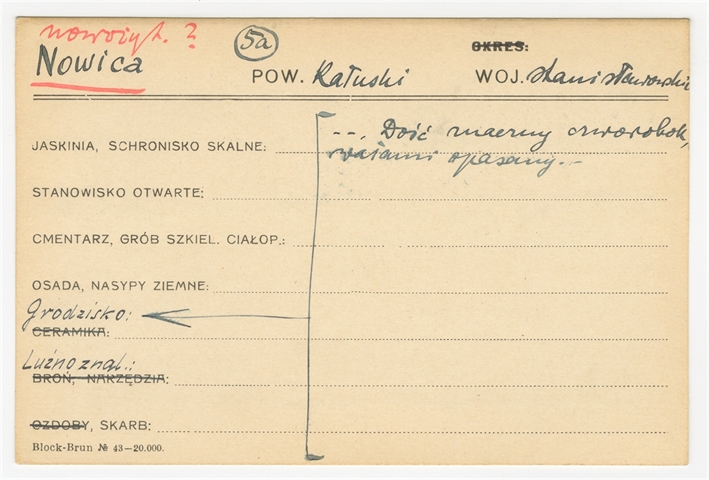 nowożyt. ?
5a
OKRES:
Nowica
POW. Kałuski
WOJ. stanisławowskie
JASKINIA, SCHRONISKO SKALNE:
--. Dość znaczny czworobok,
wałami opasany.-
STANOWISKO OTWARTE:
CMENTARZ, GRÓB SZKIEL. CIAŁOP.:
OSADA, NASYPY ZIEMNE:
Grodzisko:
CERAMIKA:
Luźno znal.:
BROŃ, NARZĘDZIA:
OZDOBY, SKARB:
Block-Brun № 43—20.000.